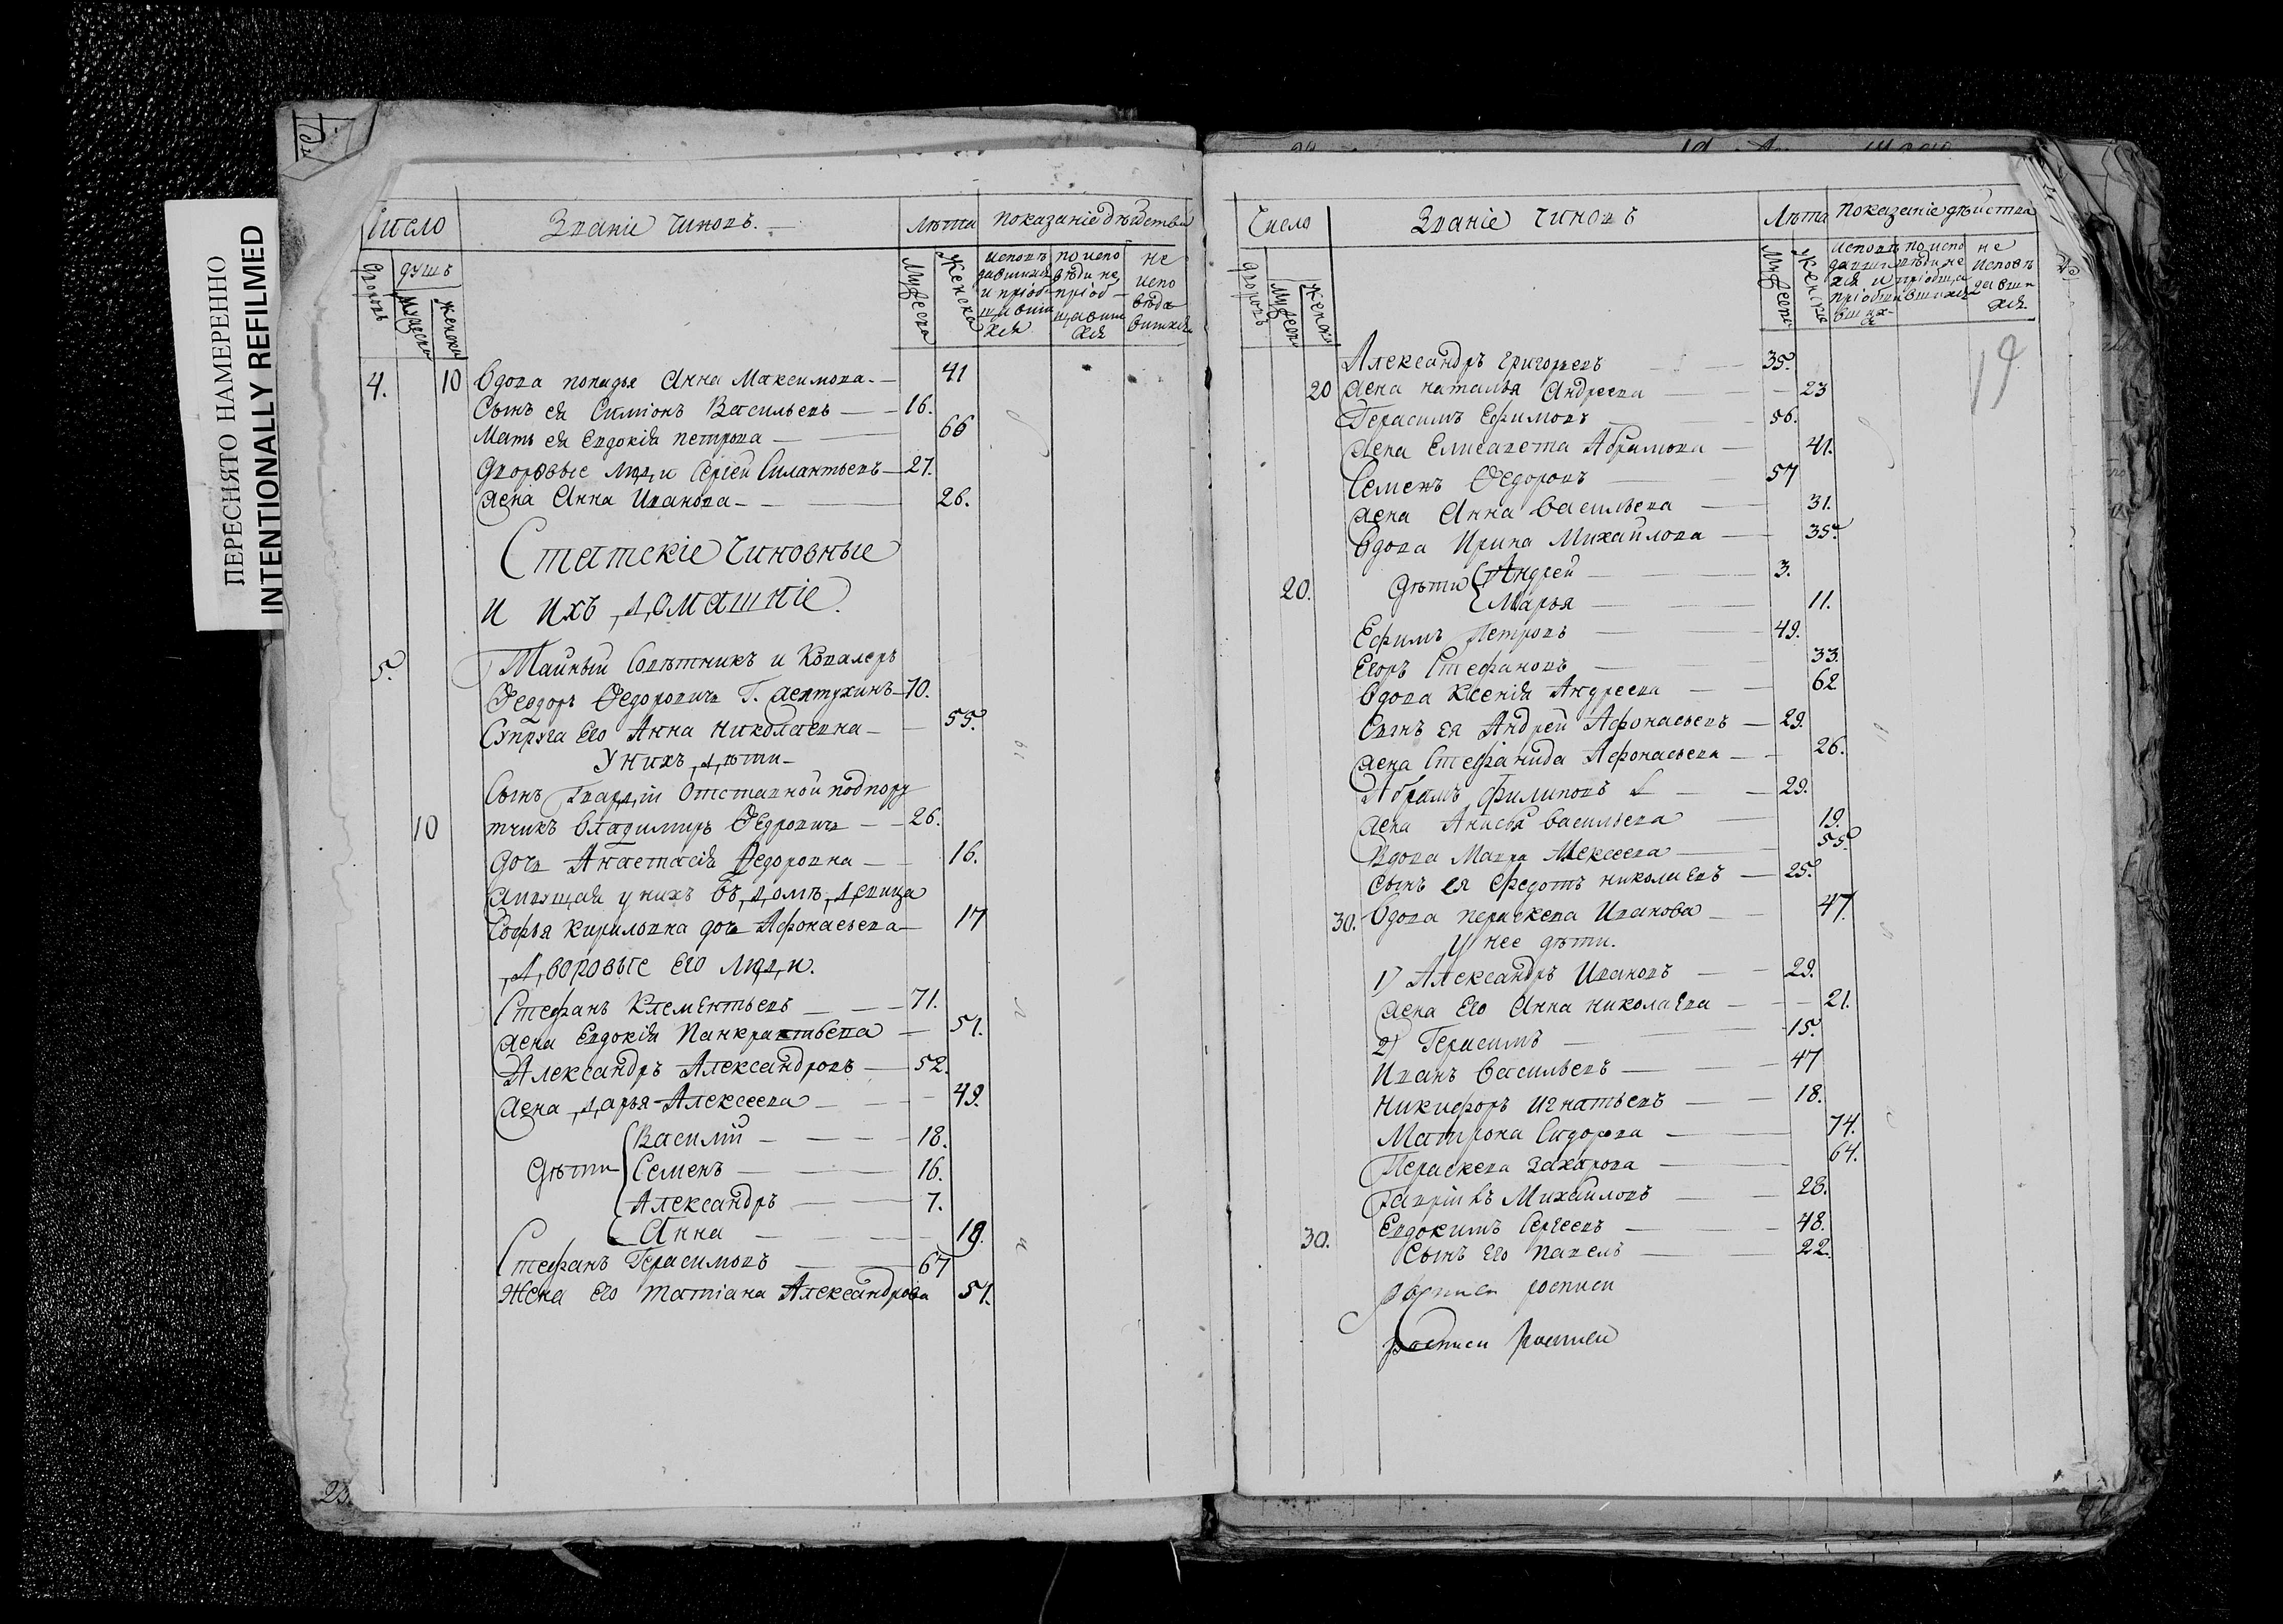 ПЕРЕСНЯТО НАМЕРЕННО
INTENTIONALLY REFILMED
Число Званіе чиновъ. Лѣта показаніе дѣйства
дворовъ душъ мужеска женска мужеска женска исповѣдавшихся и пріобщавшихся по исповѣди не пріобщавшихся не исповѣдавшихся
4. 10 Вдова попадья Анна Максимова. 41
Сынъ ея Симіонъ Васильевъ 16.
Мать ея Евдокія петрова 66
Дворовые люди Сергей Силантьевъ 27.
Жена Анна Иванова 26.
Статскіе чиновные
и ихъ домашніе.
5. Тайный Совѣтникъ и Кавалеръ
Феодоръ Федоровичь Г. Желтухинъ 70.
Супруга Его Анна Николаевна 55.
У нихъ дѣти
Сынъ Гвардіи Отставной подпору
10 тчикъ Владимиръ Федровичь 26.
Дочь Анастасія Федоровна 16.
Живущая у нихъ въ домѣ девица
Софья Кириловна дочь Афонасьева 17
Дворовые Его люди.
Стефанъ Клементьевъ 71.
Жена Евдокія Панкратьева 51.
Александръ Александровъ 52.
Жена Дарья Алексеева 49.
Василій 18.
Дѣти Семенъ 16.
Александръ 7.
Анна 19.
Стефанъ Герасимовъ 67
Жена Его Татіана Александрова 51.
23.
Число Званіе чиновъ Лѣта Показаніе дѣйства
дворовъ мужеска женска мужеска женска исповѣдавшихся и пріобщавшихся по исповѣди не пріобщавшихся не исповѣдавшихся
19
Александръ Григорьевъ 35.
20 Жена наталья Андреева 23
Герасимъ Ефимовъ 56.
Жена Елисавета Абрамова 41.
Семенъ Федоровъ 57
Жена Анна Васильева 31.
Вдова Ирина Михайлова 35.
20. Дѣти Андрей 3.
Марья 11.
Ефимъ Петровъ 49.
Егоръ Стефановъ 33.
Вдова Ксенія Андреева 62
Сынъ ея Андрей Афонасьевъ 29.
Жена Стефанида Афонасьева 26.
Абрамъ Филиповъ 29.
Жена Анисья Васильева 19.
Вдова Мавра Алексеева 55.
Сынъ ея Федотъ николаевъ 25.
30. Вдова пераскева Иванова 47.
У нее дѣти.
1) Александръ Ивановъ 29.
Жена Его Анна николаева 21.
2) Герасимъ 15.
Иванъ Васильевъ 47
Никифоръ Игнатьевъ 18.
Матрона Сидорова 74.
Пераскева Захарова 64.
Гавріилъ Михайловъ 28.
30. Евдокимъ Сергеевъ 48.
Сынъ Его Павелъ 22.
росписи
росписи росписи